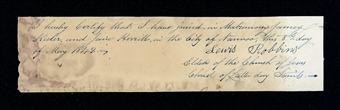 I hereby Certify that I have joined in Matrimony James
Rider, and Jane Herrett in the City of Nauvoo, this 8th day
of May 1842.
Lewis Robbins
Elder of the Church of Jesus
Christ of Latter day Saints.